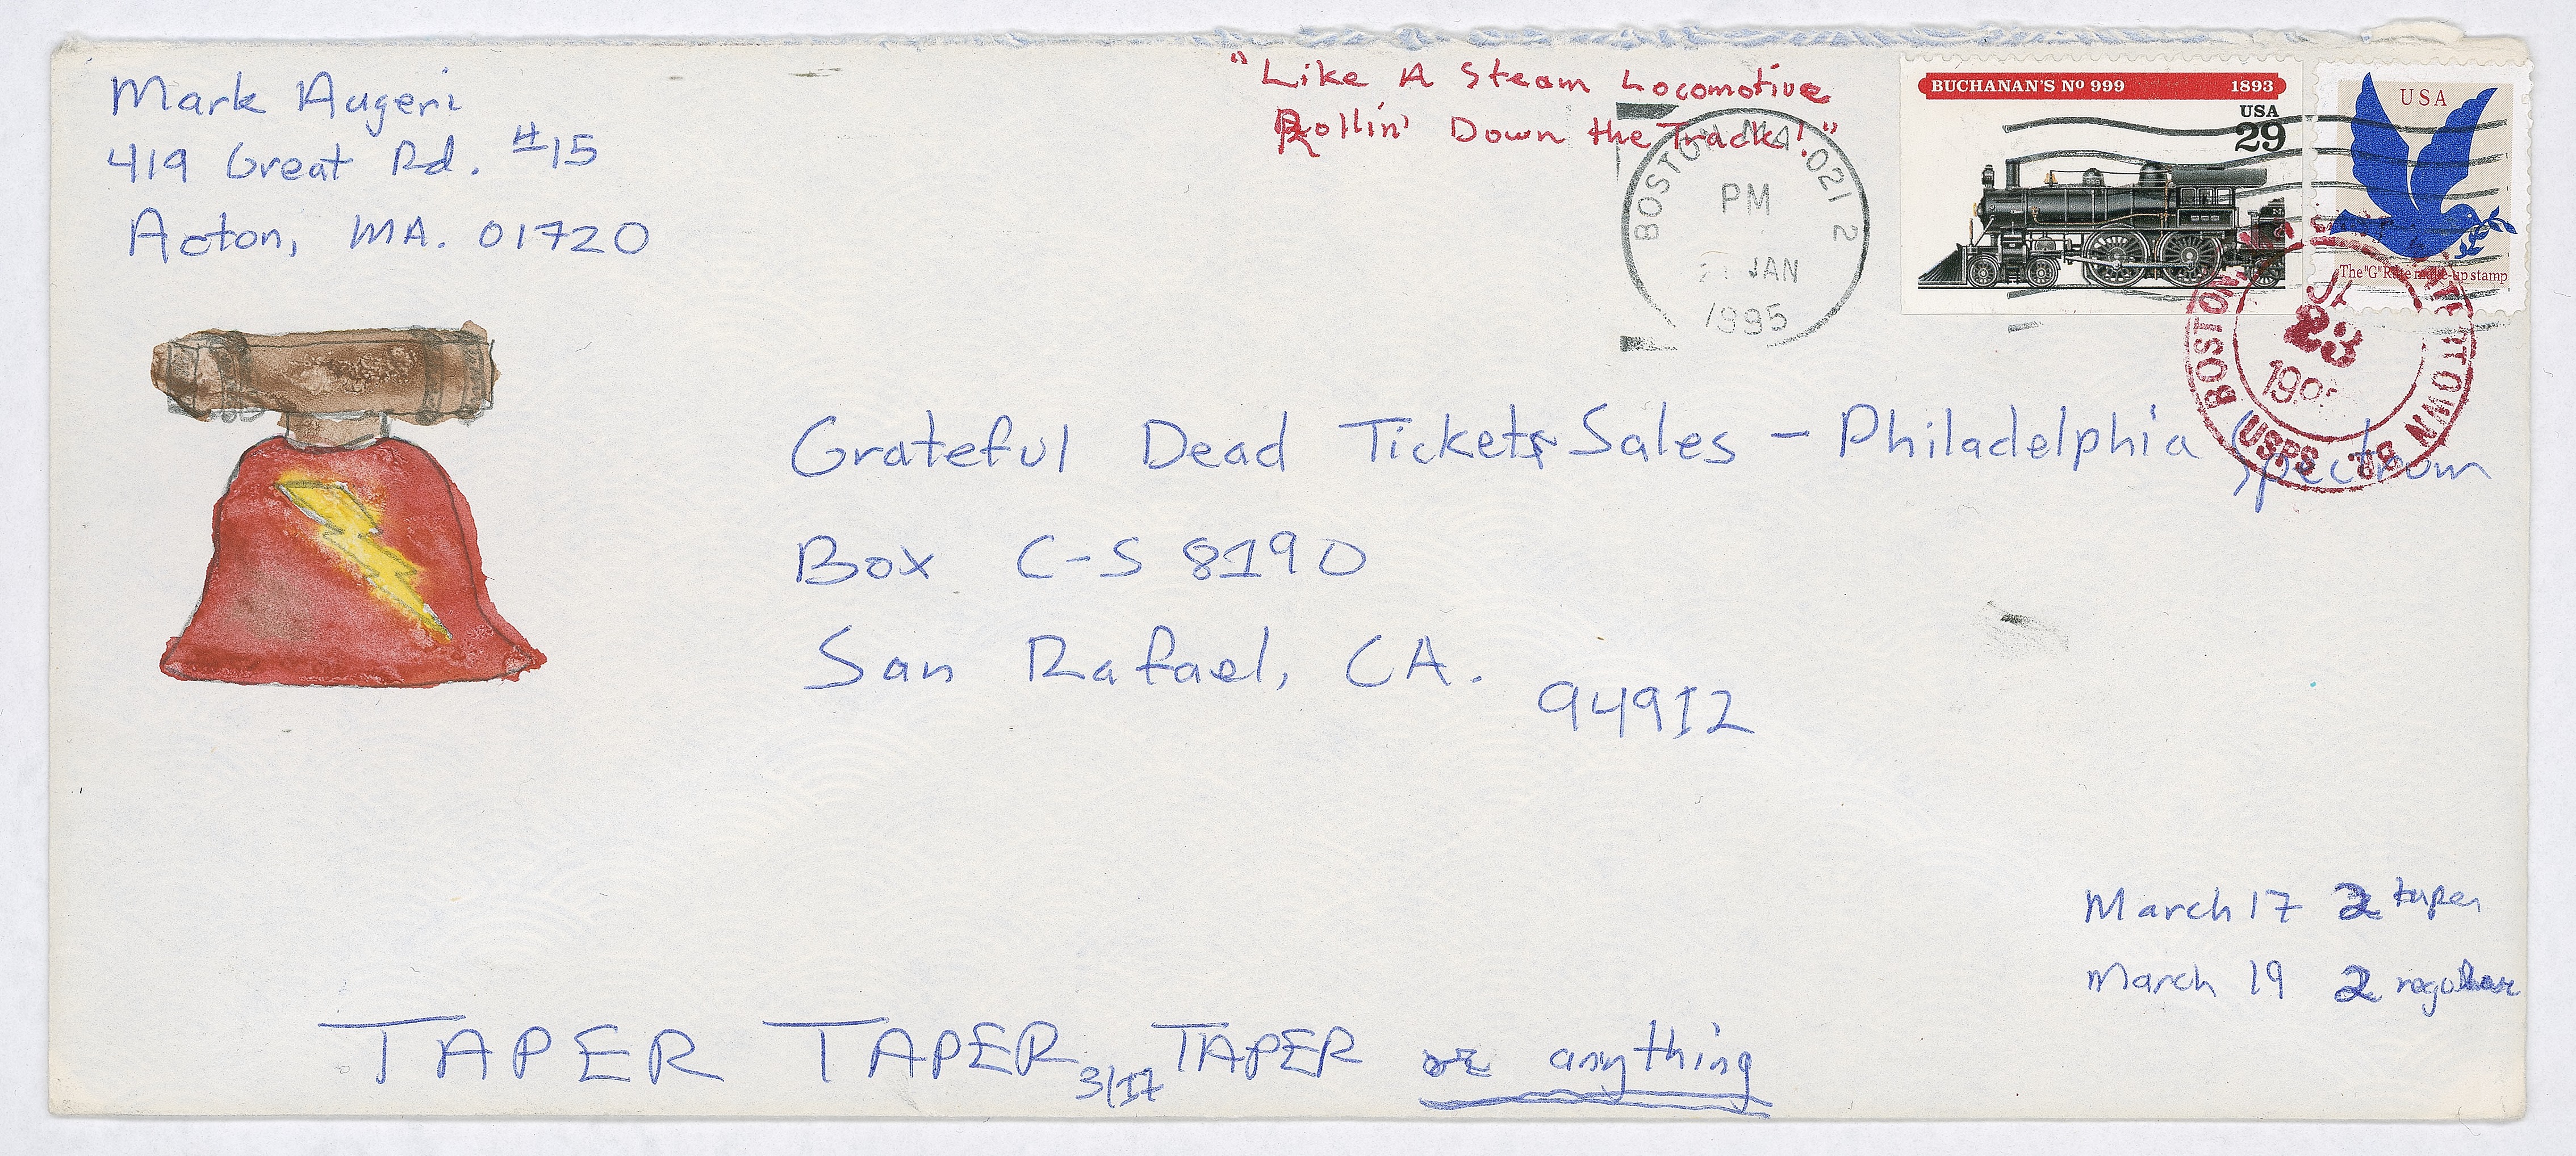 Mark Augeri
419 Great Rd. #15
Acton, MA. 01720
"Like A Steam Locomotive
Rollin' Down the Track!"
BOSTON MA 021 2
PM
JAN
1995
BUCHANAN'S Nº 999 1893
USA
29
USA
The "G" Rate make-up stamp
BOSTON
23
USPS
Grateful Dead Tickets Sales - Philadelphia Spectrum
Box C-S 8190
San Rafael, CA.
94912
March 17 2 taper
March 19 2 regular
TAPER TAPER 3/17 TAPER or anything